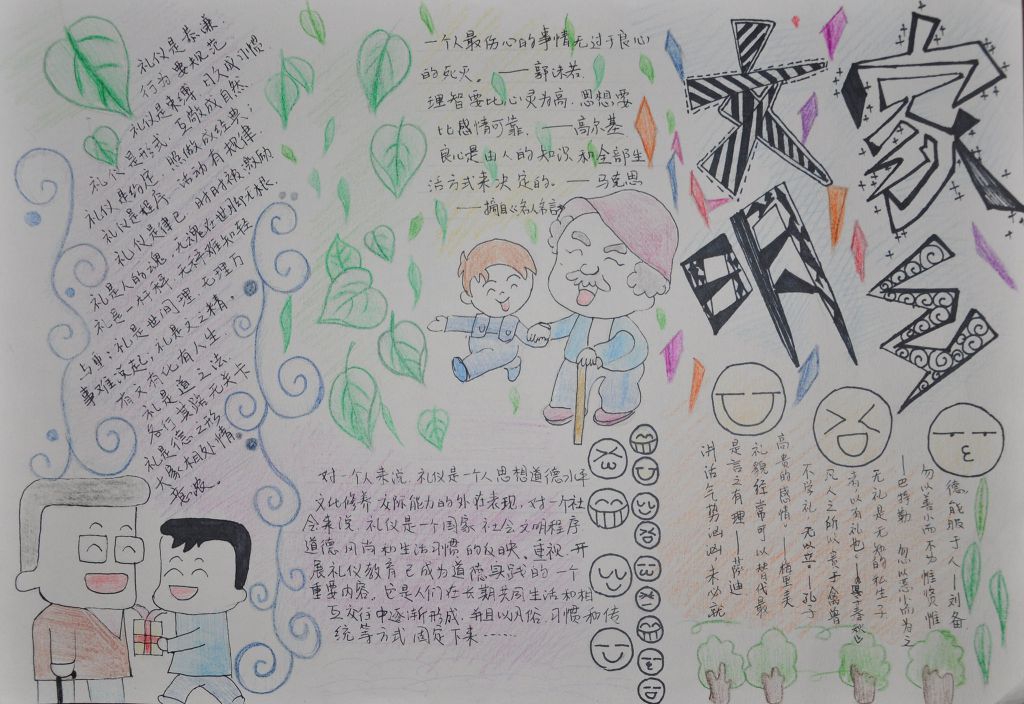 礼仪是恭谦
行为要规范
礼仪是束缚 日久成习惯
礼仪是形式 互敬成自然
礼仪是约定 照做成经典;
礼仪是程序 活动有规律
礼仪是律己 时时被激励
礼是人的魂,无魂在世脚无根.
礼是一杆秤 无秤难知轻
与重;礼是世间理 无理万
事难谈起,礼是文之精。
有文有化有人生
礼是道之法.
各行其路无关卡
礼是德之形
大家相处情
意浓。
一个人最伤心的事情无过于良心
的死灭。——郭沫若.
理智要比心灵为高.思想要
比感情可靠.——高尔基
良心是由人的知识和全部生
活方式来决定的。——马克思
——摘自《名人名言》
文
明
家
对一个人来说.礼仪是一个人思想道德水平
文化修养 交际能力的外在表现,对一个社
会来说.礼仪是一个国家社会文明程序
道德风尚和生活习惯的反映。重视.开
展礼仪教育已成为道德实践的一个
重要内容。它是人们在长期共同生活和相
互交往中逐渐形成.并且以风俗.习惯和传
统等方式固定下来……
德能服于人——刘备
勿以善小而不为 惟贤惟
——巴特勒 勿以恶小而为之
无礼是无知的私生子
凡人之所以贵于禽兽
者以有礼也——晏子春秋
不学礼.无以立——孔子
高贵的感情——梅里美
礼貌经常可以替代最
是言之有理——萨迪
讲话气势汹汹,未必就